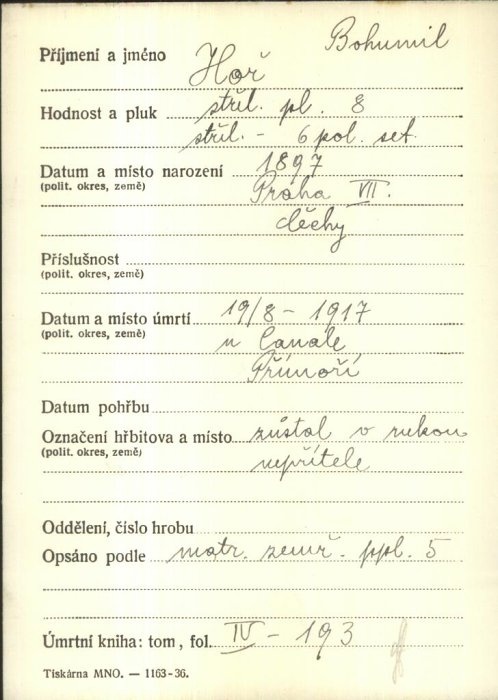 Bohumil
Příjmení a jméno Hoř
Hodnost a pluk střel. pl. 8
střel. - 6 pol. set.
Datum a místo narození 1897
(polit. okres, země) Praha VII.
Čechy
Příslušnost
(polit. okres, země)
Datum a místo úmrtí 19/8 - 1917
(polit. okres, země) u Canale
Přímoří
Datum pohřbu
Označení hřbitova a místo zůstal v rukou
(polit. okres, země) nepřítele
Oddělení, číslo hrobu
Opsáno podle matr. zemř. ppl. 5
Úmrtní kniha: tom, fol. IV - 193
Tiskárna MNO. — 1163-36.